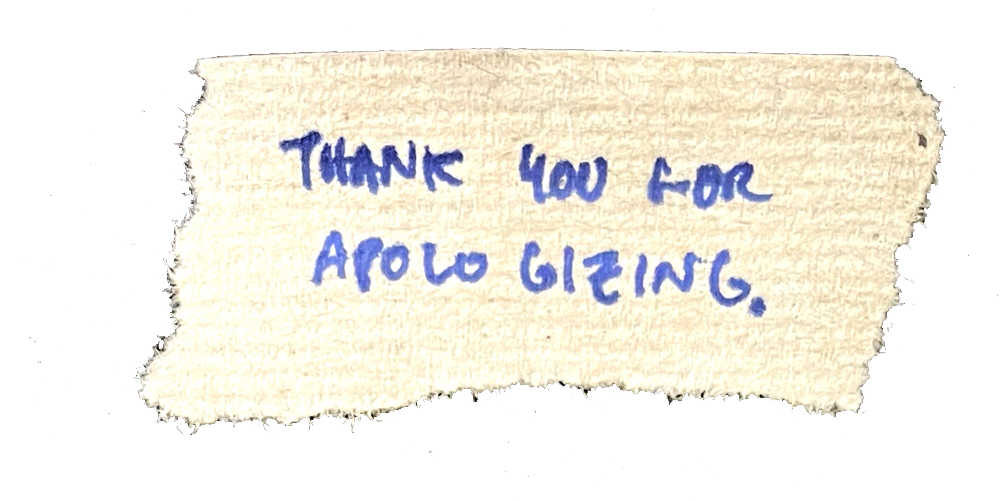 THANK YOU FOR
APOLO GIZING.